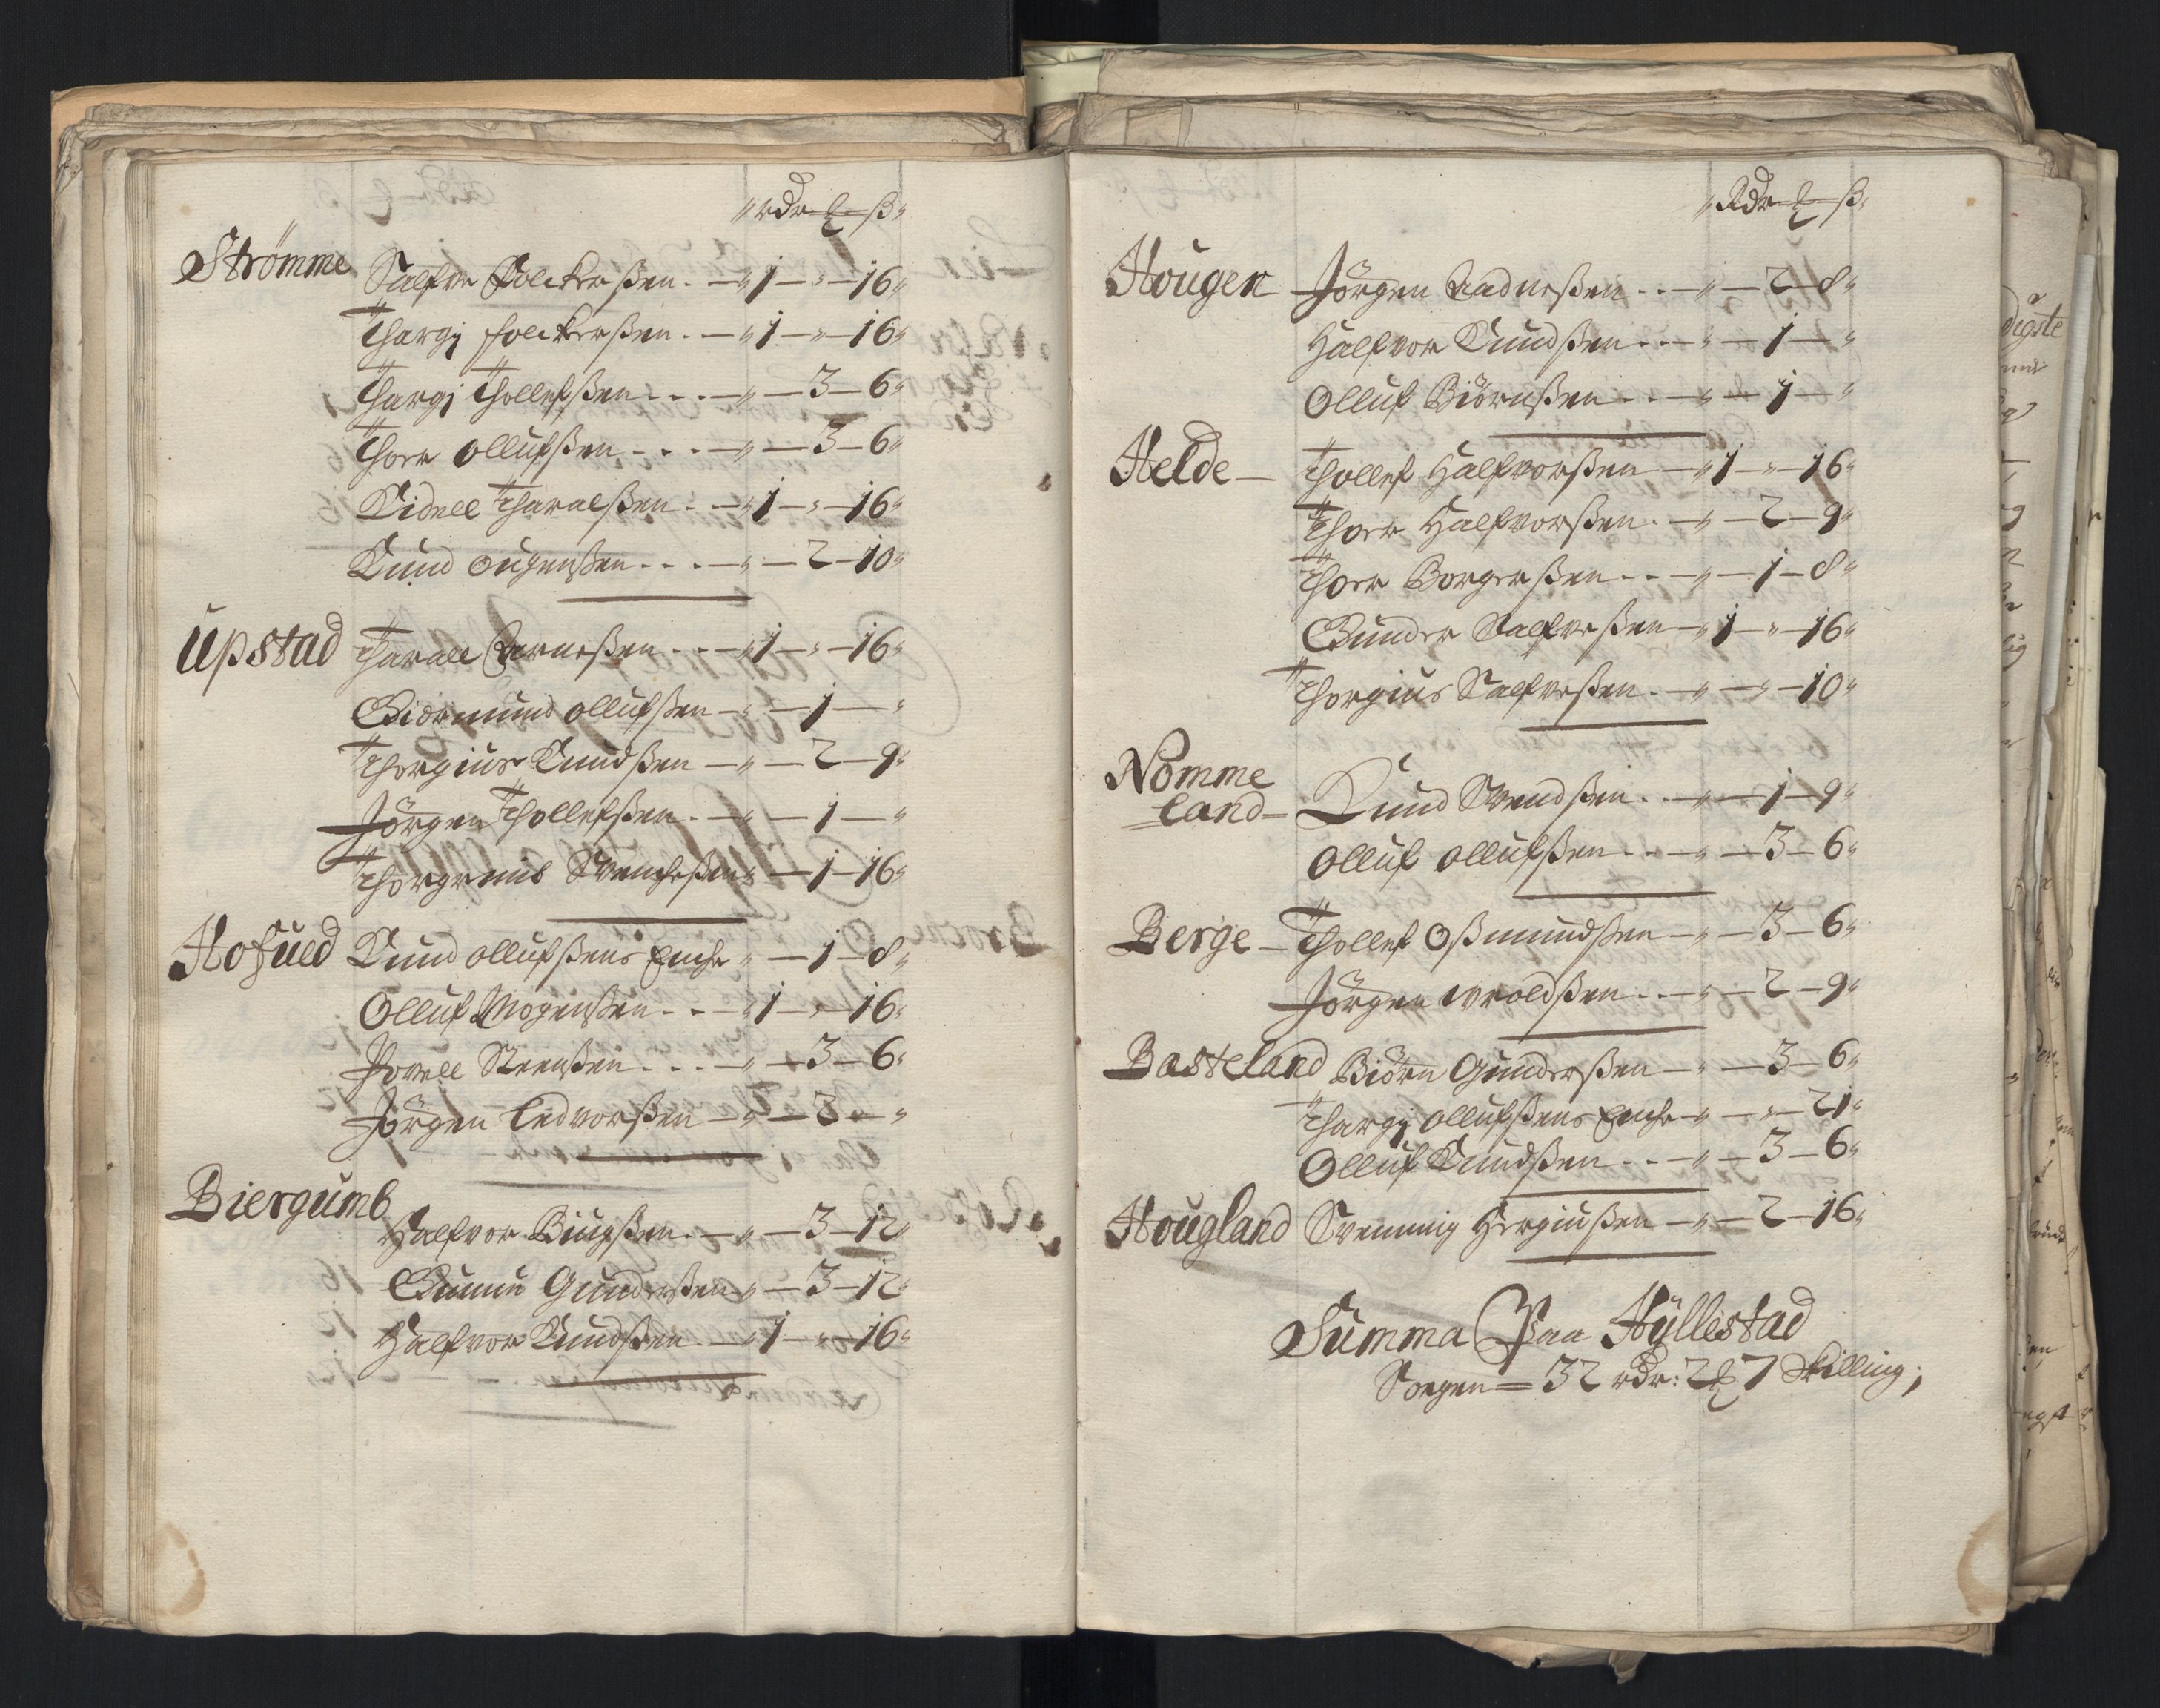 "rdr – ƺ – ß"
Strømme Salfve Folckerßen . – " 1 – " – 16 "
Thargj folckerßen . – " 1 – " – 16 "
Thargj Thollefßen . . . – " – 3 – 6 "
Thore Ollufßen . . . – " – 3 – 6 "
Kidell Tharalßen . – " 1 – " – 16 "
Knud Ougenßen . . . – " – 2 – 10 "
Upstad Tharall Arneßen . . . – " 1 – " – 16 "
Giermund Ollufßen – " – 1 – "
Thorgius Knudßen – " – 2 – 9 "
Jörgen Thollefßen . – " – 1 – "
Thorgrimb Svenckeßen " – 1 – 16 "
Hofued Knud Ollufßens Enche " – 1 – 8 "
Olluf Mogenßen . . – " 1 – " – 16 "
Povell Steenßen . . . – " – 3 – 6 "
Jörgen Ledvorßen – " – 3 – "
Biergumb
Halfvor Biugßen . – " – 3 – 12 "
Gunnu Gunderßen " – 3 – 12 "
Halfvor Knudßen . – " 1 – " – 16 "
" Rdr – ƺ – ß "
Hougen Jörgen Aadneßen . . – " – 2 – 8 "
Halfvor Knudßen . . . – " – 1 – "
Olluf Biörnßen . . – " – 1 – "
Helde – Thollef Halfvorßen – " 1 – " – 16 "
Thore Halfvorßen . – " – 2 – 9 "
Thore Borgerßen . . – " – 1 – 8 "
Gunder Salfveßen – " 1 – " – 16 "
Thorgius Salfveßen . – " – " – 10 "
Nomme
land – Knud Svendßen . . – " – 1 – 9 "
Olluf Ollufßen . . . – " – 3 – 6 "
Berge – Thollef Oßmundßen – " – 3 – 6 "
Jörgen wroldßen . . . – " – 2 – 9 "
Basteland Biörn Gunderßen – " – 3 – 6 "
Thargj Ollufßens Enche – " – " – 21 "
Olluf Knudßen . . . – " – 3 – 6 "
Hougland Svennnig Hergiußen – " – 2 – 16 "
Summa Paa Hyllestad
Sogen = 32 rdr : 2 ƺ 7 Skilling ;